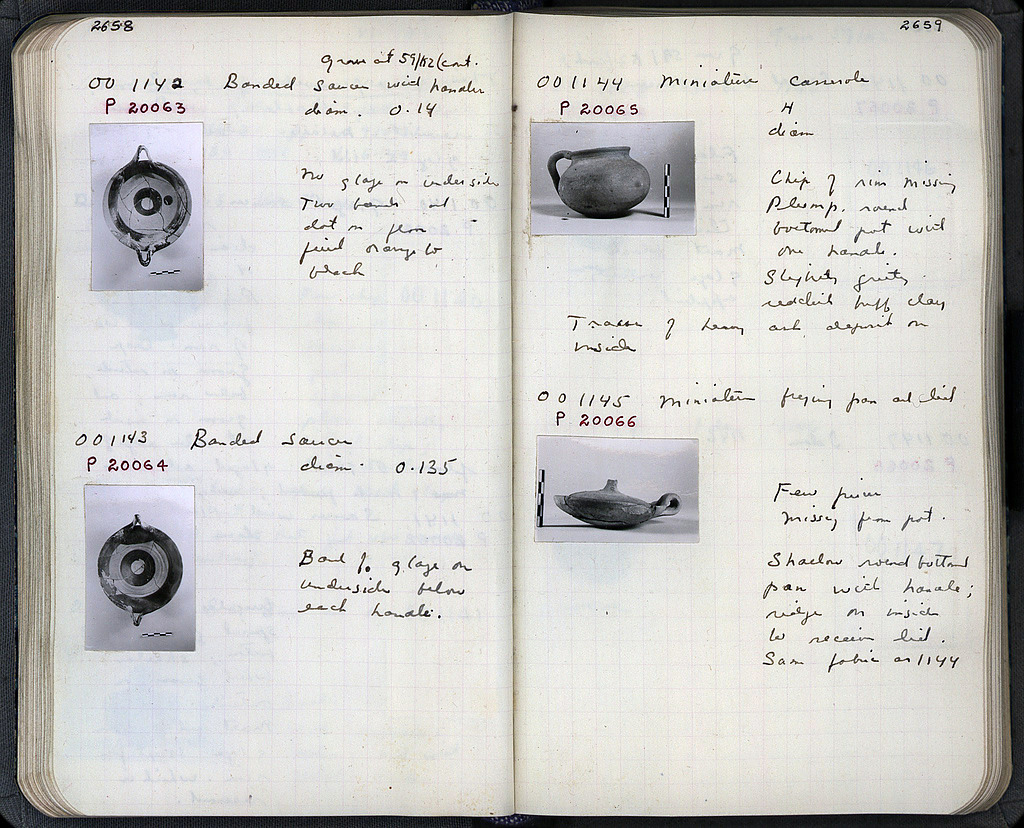 2658
Grave at 59/KZ (cont.
OO 1142 Banded saucer with handles
P 20063 diam. 0.14
No glaze on underside
Two bands and
dot on floor
fired orange to
black
OO 1143 Banded saucer
P 20064 diam. 0.135
Band of glaze on
underside below
each handle.
2659
OO 1144 Miniature casserole
P 20065 H
diam
Chip of rim missing
Plump, round
bottomed pot with
one handle.
Slightly gritty
reddish buff clay
Traces of heavy ash deposit on
inside
OO 1145 Miniature frying pan and lid
P 20066
Few pieces
missing from pot.
Shallow round bottomed
pan with handle;
ridge on inside
to receive lid.
Same fabric as 1144